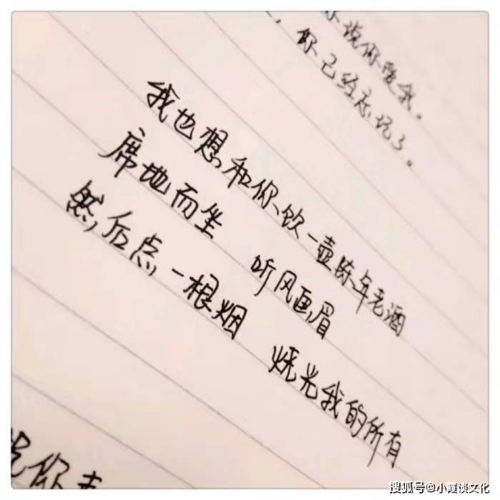 你说你爱我。
你已经忘记了。
我也想和你饮一壶陈年老酒
席地而坐 听风画眉
然后点一根烟 烧光我的所有
说你
搜狐号@小霞谈文化